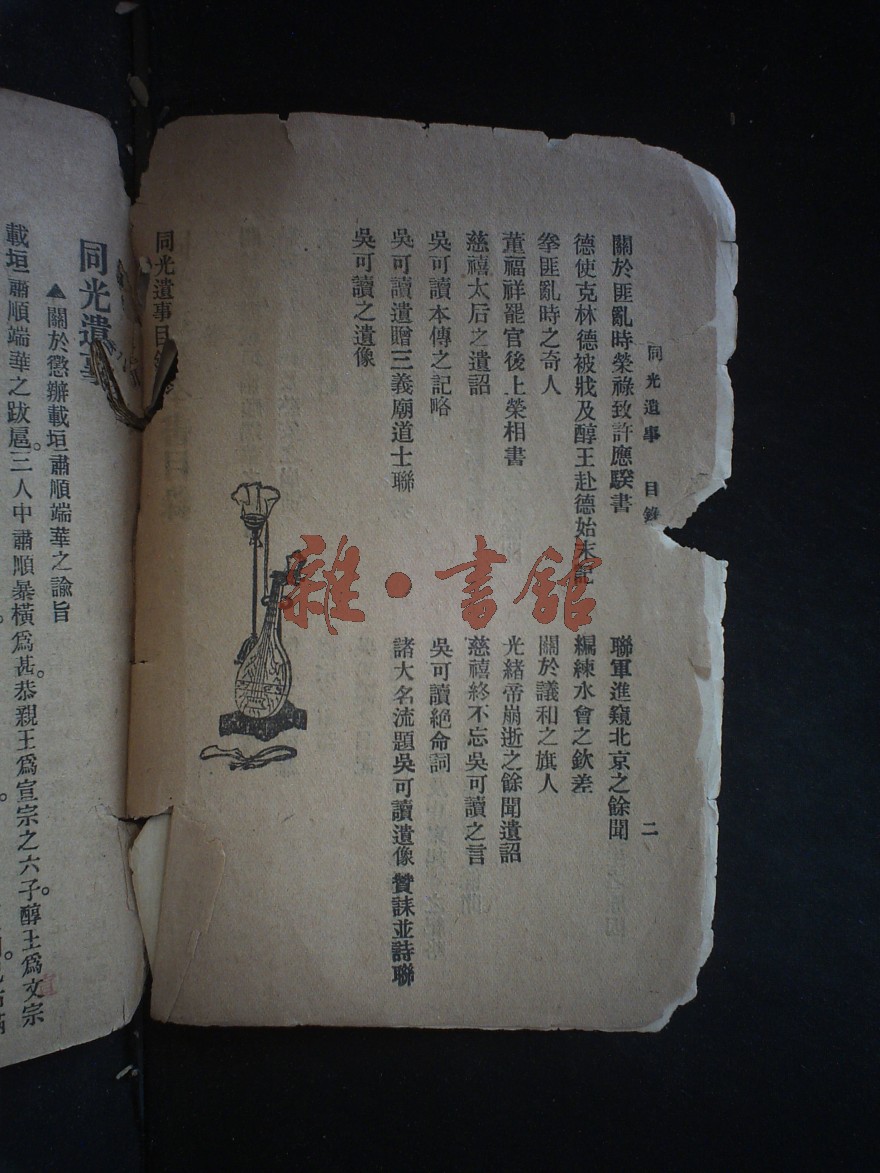 同光遺事 目錄 二
關於匪亂時榮祿致許應騤書
聯軍進窺北京之餘聞
德使克林德被戕及醇王赴德始末記
編練水會之欽差
拳匪亂時之奇人
關於議和之旗人
董福祥罷官後上榮相書
光緒帝崩逝之餘聞遺詔
慈禧太后之遺詔
慈禧終不忘吳可讀之言
吳可讀本傳之記略
吳可讀絕命詞
吳可讀遺贈三義廟道士聯
諸大名流題吳可讀遺像贊誄並詩聯
吳可讀之遺像
同光遺事目錄
同光遺事
▲關於懲辦載垣肅順端華之諭旨
載垣肅順端華之跋扈。三人中肅順暴橫爲甚。恭親王爲宣宗之六子。醇王爲文宗
雜·書館